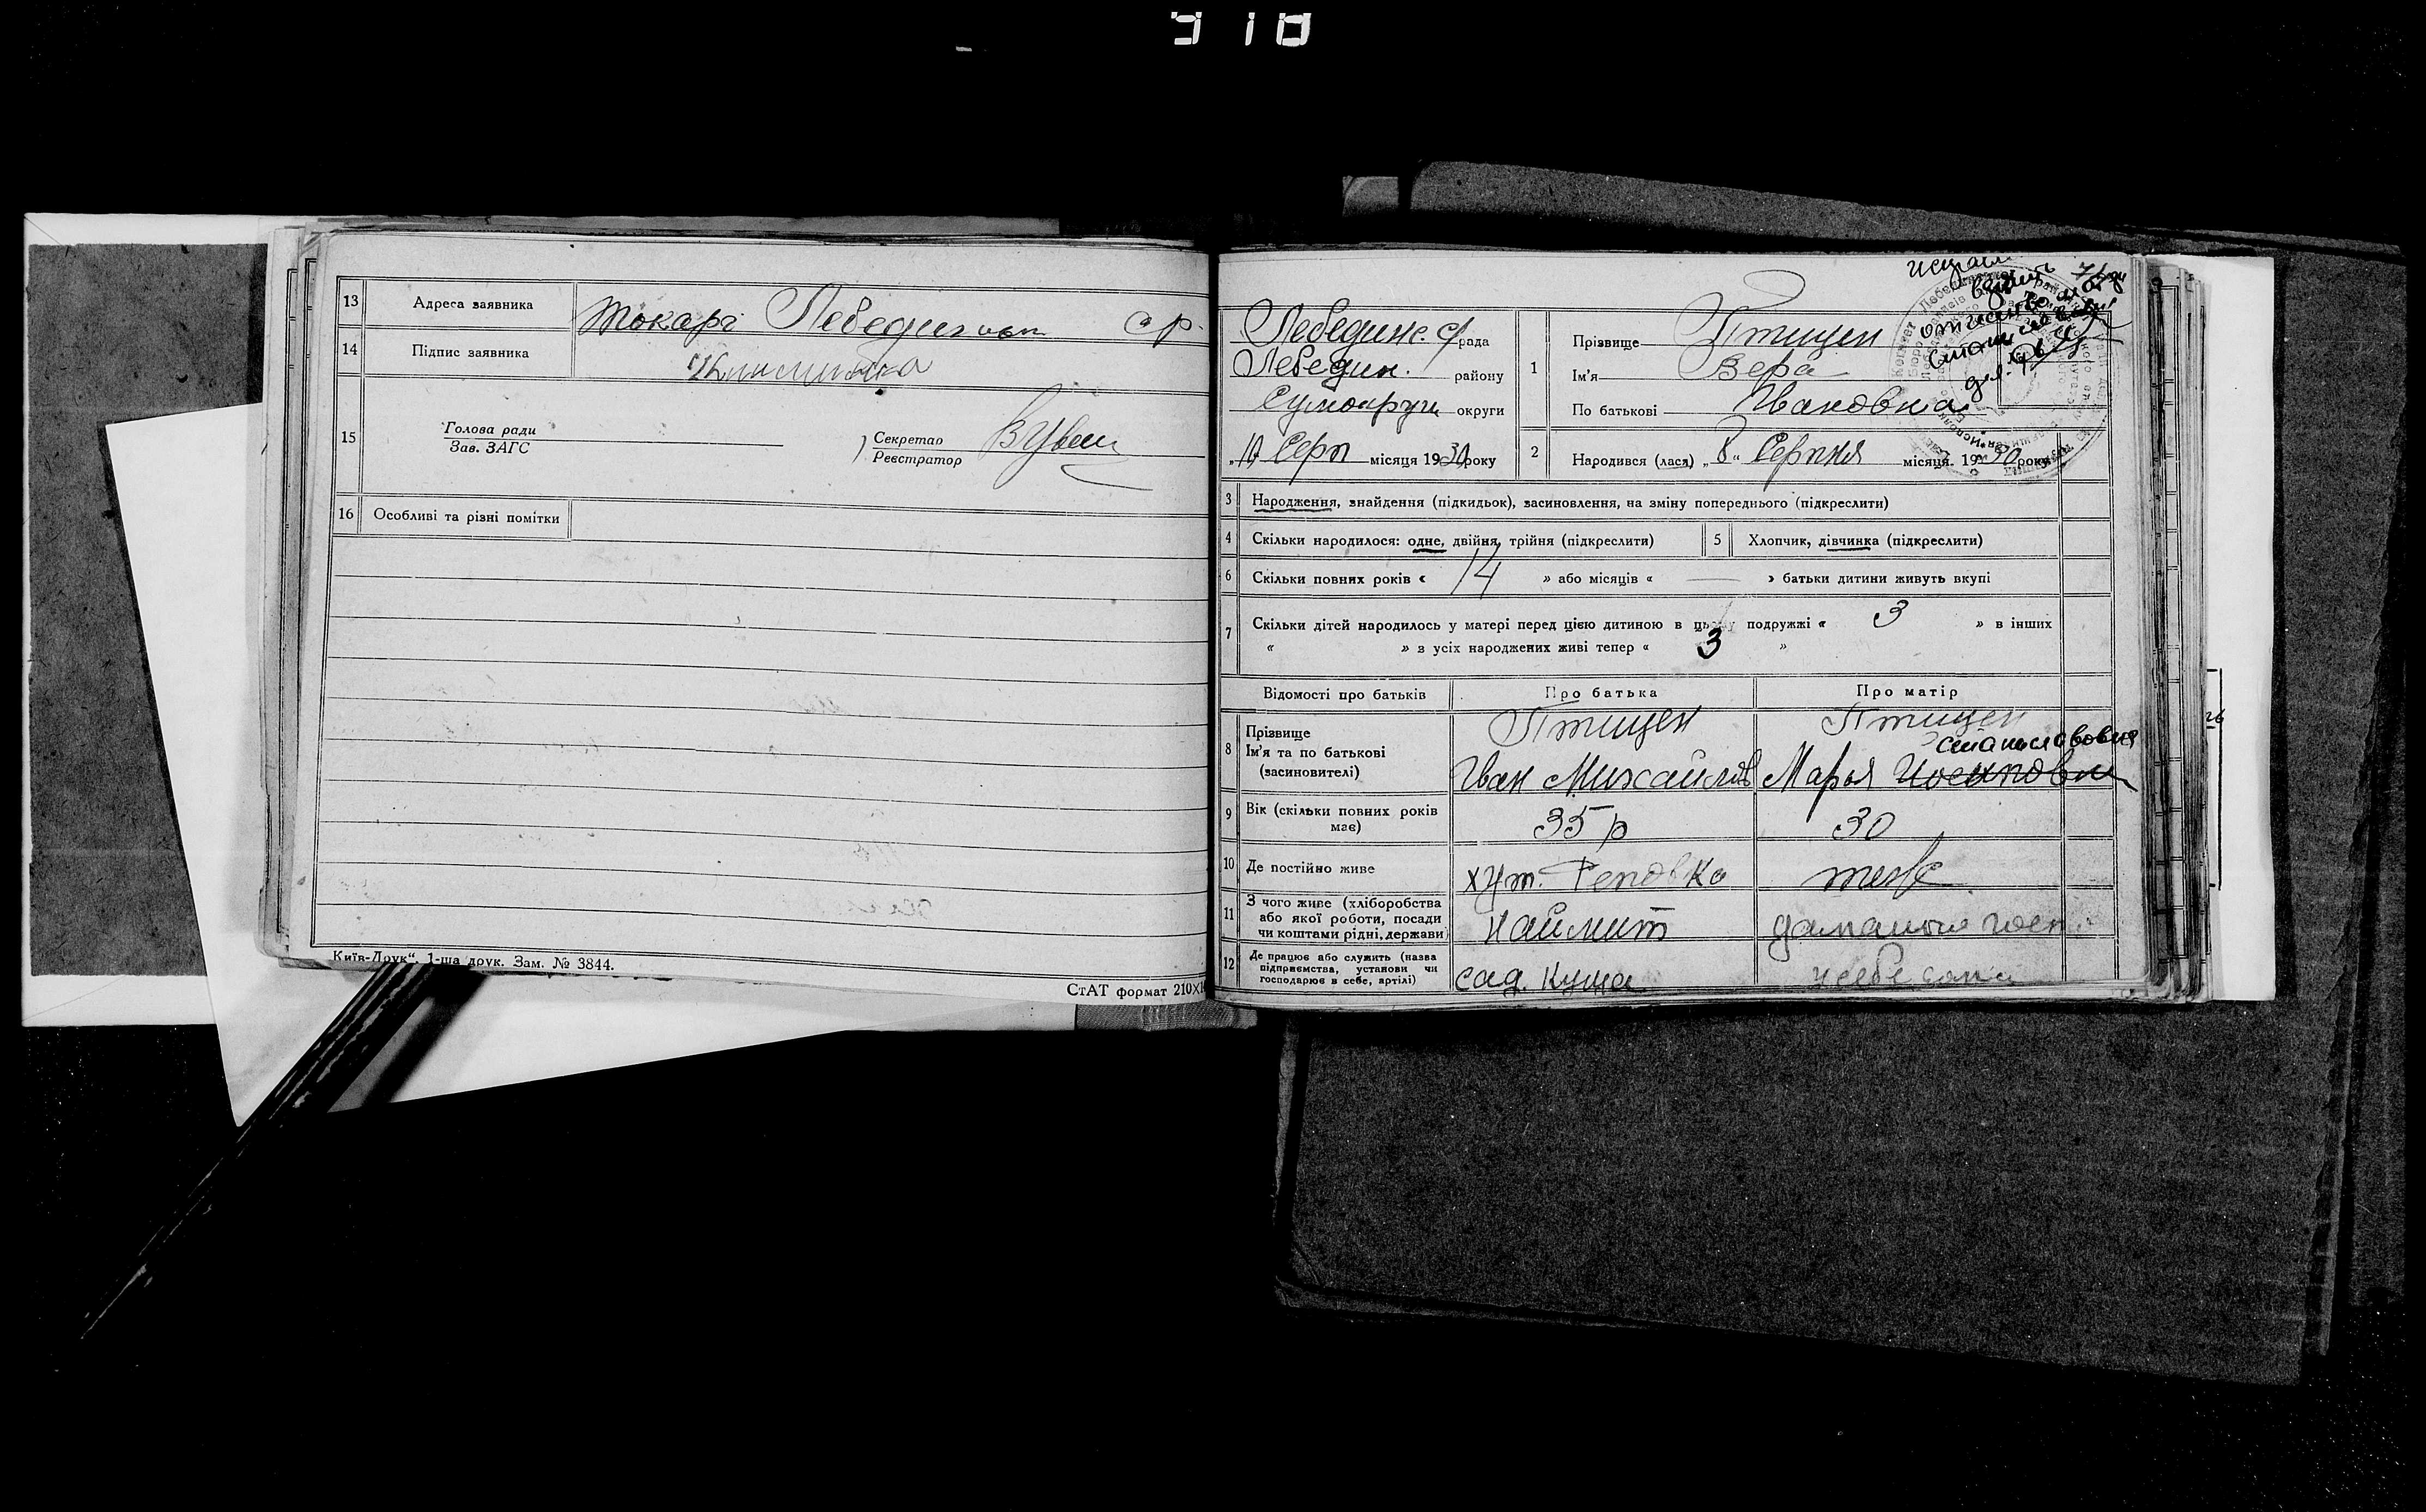 918
13 Адреса заявника Токарі Лебединської ср.
14 Підпис заявника
15 Голова ради
Зав. ЗАГС
Секретар
Реєстратор
16 Особливі та різні помітки
„Київ-Друк“, 1-ша друк. Зам. № 3844.
СтАТ формат 210×
Лебединс. с/рада
Лебедин. району
Сумокруги округи
„10 Серп місяця 1930 року
1 Прізвище Птицен
Ім'я Вера
По батькові Ивановна
2 Народився (лася) „8“ Серпня місяця 1930 року
3 Народження, знайдення (підкидьок), засиновлення, на зміну попереднього (підкреслити)
4 Скільки народилося: одне, двійня, трійня (підкреслити) 5 Хлопчик, дівчинка (підкреслити)
6 Скільки повних років « 14 » або місяців « — » батьки дитини живуть вкупі
7 Скільки дітей народилось у матері перед цією дитиною в цьому подружжі « 3 » в інших
« » з усіх народжених живі тепер « 3 »
Відомості про батьків Про батька Про матір
8 Прізвище Птицен Птицен
Ім'я та по батькові Станиславовна
(засиновителі) Іван Михайлів Марья Иосиповна
9 Вік (скільки повних років має) 35 р 30
10 Де постійно живе хут. теж
11 З чого живе (хліборобства або якої роботи, посади чи коштами рідні, держави) наймит
12 Де працює або служить (назва підприємства, установи чи господарює в себе, артілі) сад. Куща